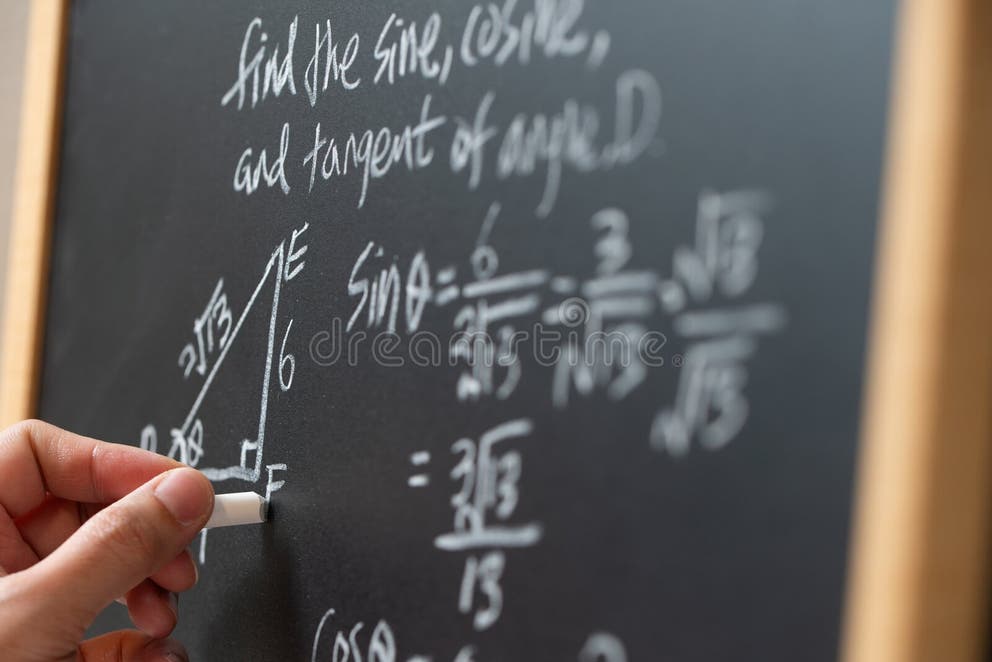 find the sine, cosine,
and tangent of angle D.
E
2√13
6
θ
F
sin θ = 6/2√13 = 3/√13 · √13/√13
= 3√13/13
cos θ =
dreamstime